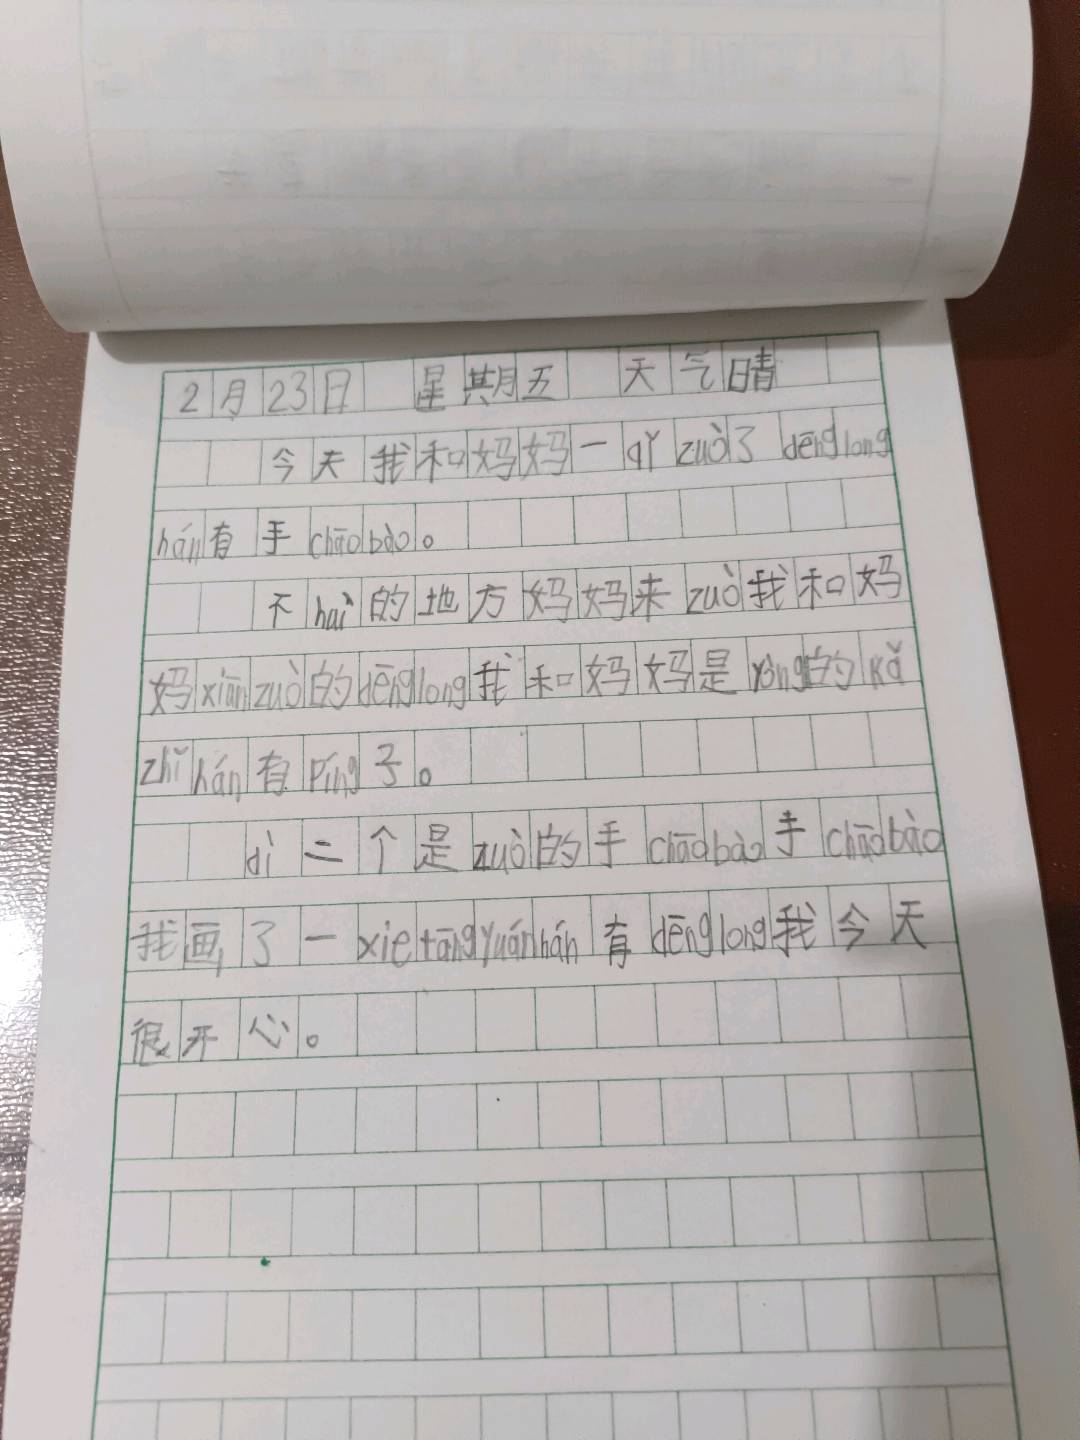 2月23日 星期五 天气晴
今天我和妈妈一qǐ zuò了dēnglong
hán有手chāobào。
不haì的地方妈妈来zuò我和妈
妈xiānzuò的dēnglong我和妈妈是yòng的kǎ
zhǐhán有píng子。
dì二个是zuò的手chāobào手chāobào
我画了一xietāngyuánhán有dēnglong我今天
很开心。